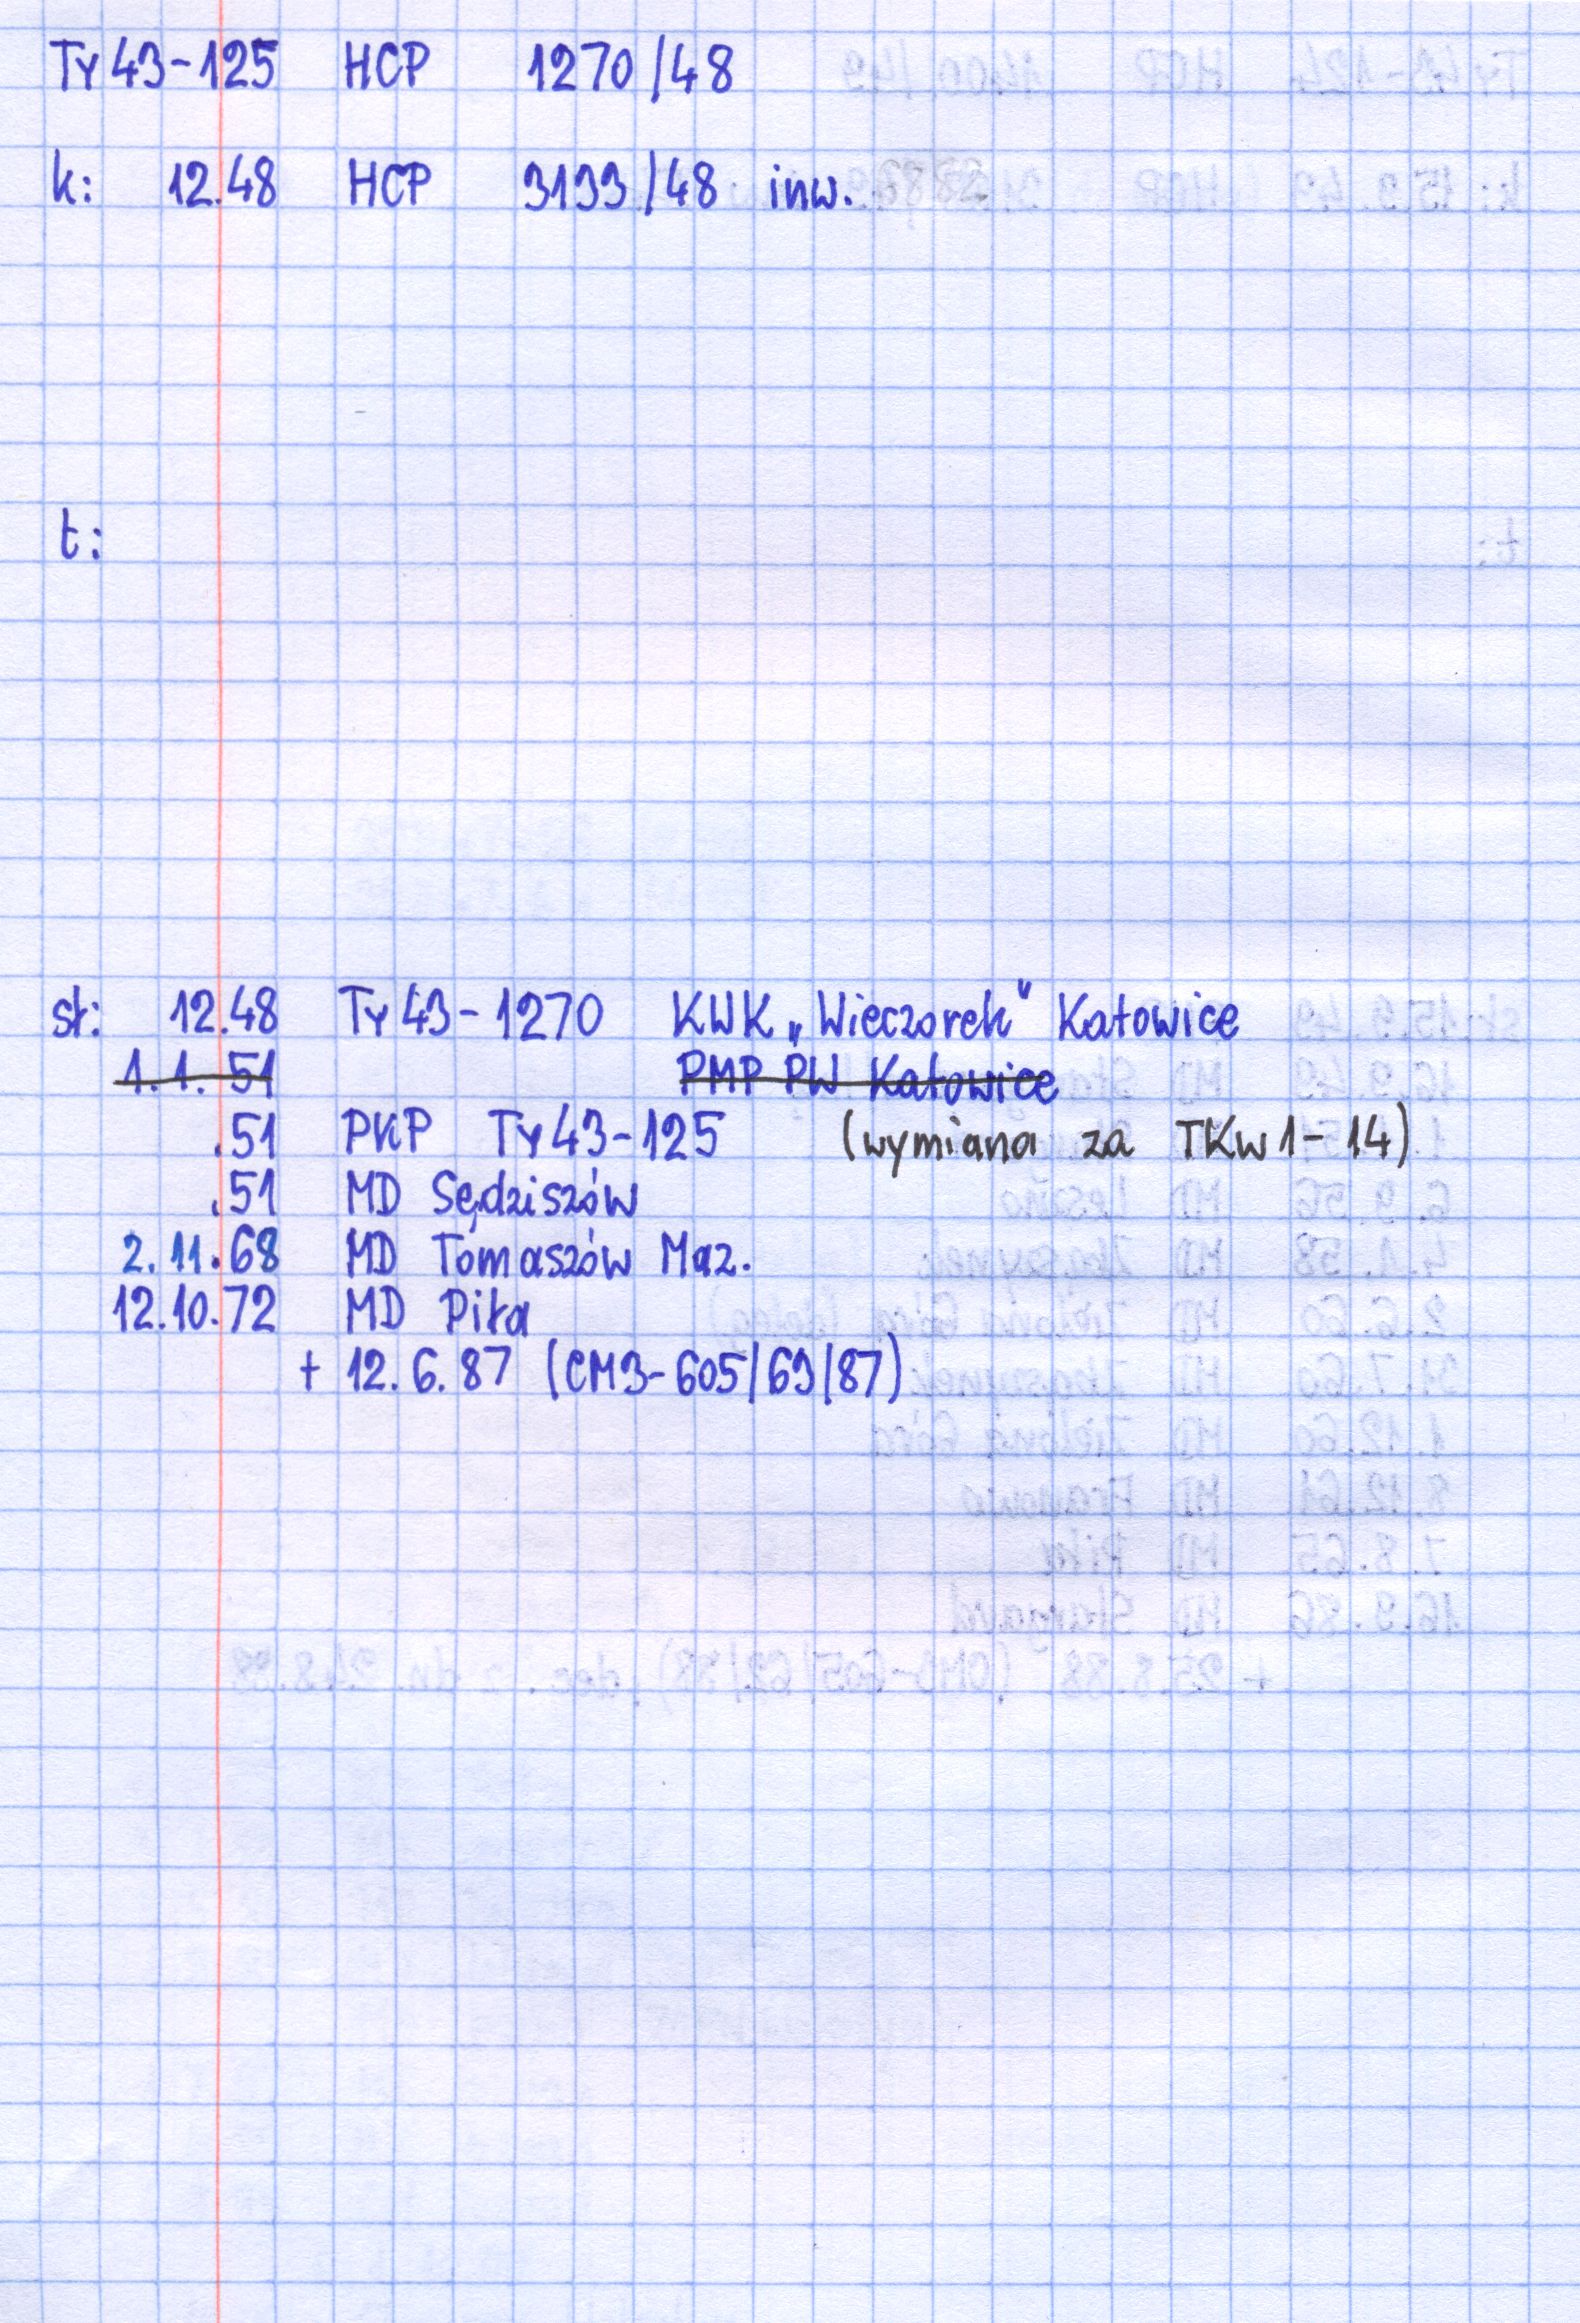 Ty 43-125 HCP 1270/48
k: 12.48 HCP 3193/48 inw.
t:
st: 12.48 Ty 43-1270 KWK „Wieczorek" Katowice
1.1.51 PMP PW Katowice
.51 PKP Ty 43-125 (wymiana za TKw1-14)
.51 MD Sędziszów
2.11.68 MD Tomaszów Maz.
12.10.72 MD Piła
+ 12.6.87 (CM3-605/69/87)